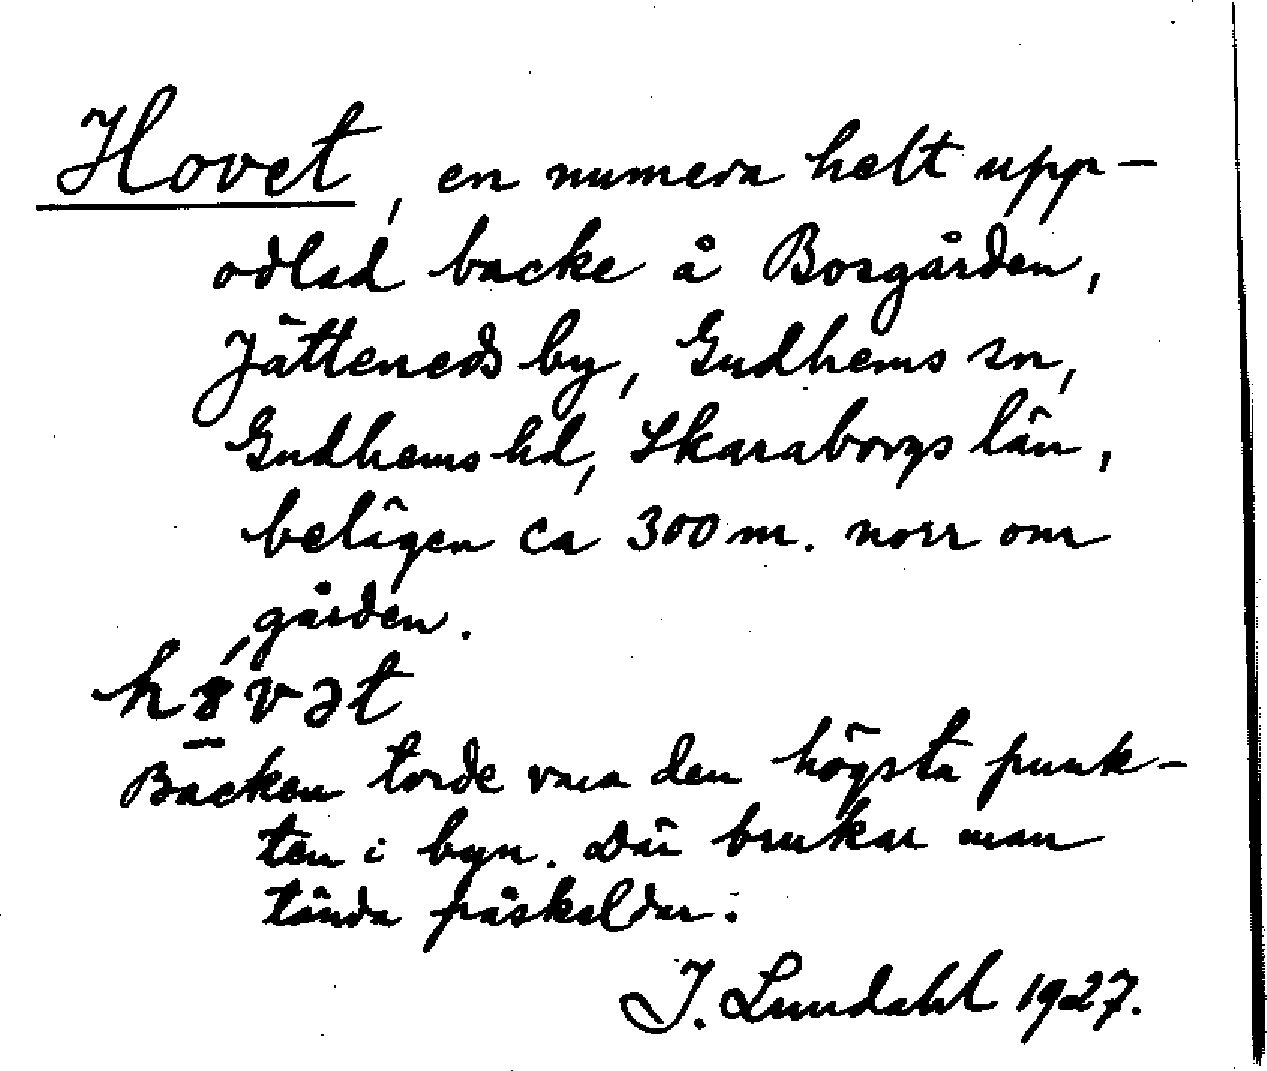 Hovet, en numera helt upp-
odlad backe å Bosgården,
Jätteneds by, Gudhems sn,
Gudhems hd, Skaraborgs län,
belägen ca 300 m. norr om
gården.
Backen torde vara den högsta punk-
ten i byn. Där brukar man
tända påskeldar.
I. Lundahl 1927.